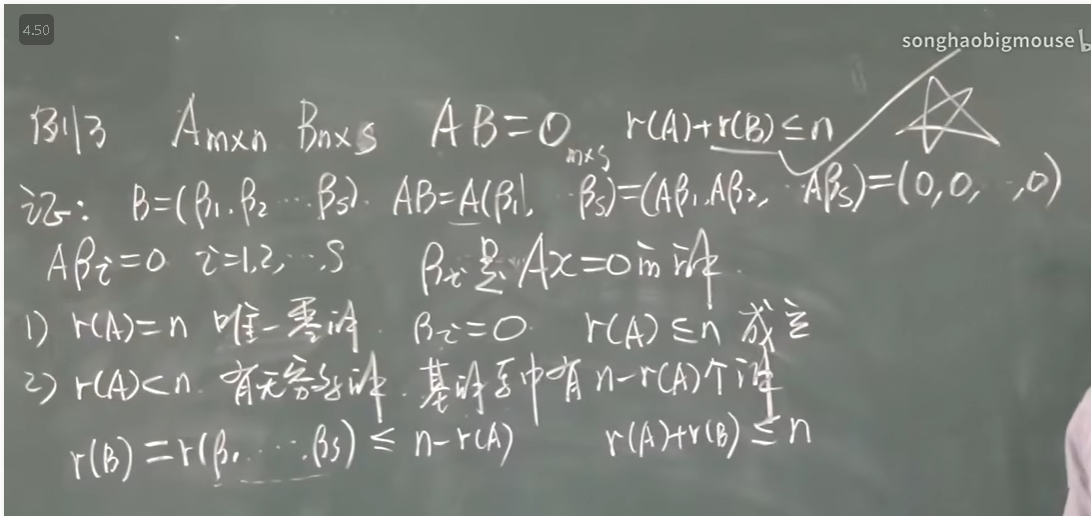 4.50
songhaobigmouse b
例3 Am×n Bn×s AB=0m×s r(A)+r(B)≤n
证: B=(β1,β2 ⋯ βs). AB=A(β1, ⋯ βs)=(Aβ1,Aβ2, ⋯ Aβs)=(0,0, ⋯,0)
Aβi=0 i=1,2,⋯,s βi是Ax=0的解.
1) r(A)=n 唯一零解. βi=0. r(A)≤n 成立
2) r(A)<n. 有无穷多解. 基解系中有 n-r(A)个解
r(B)=r(β1 ⋯ βs)≤ n-r(A) r(A)+r(B)≤n